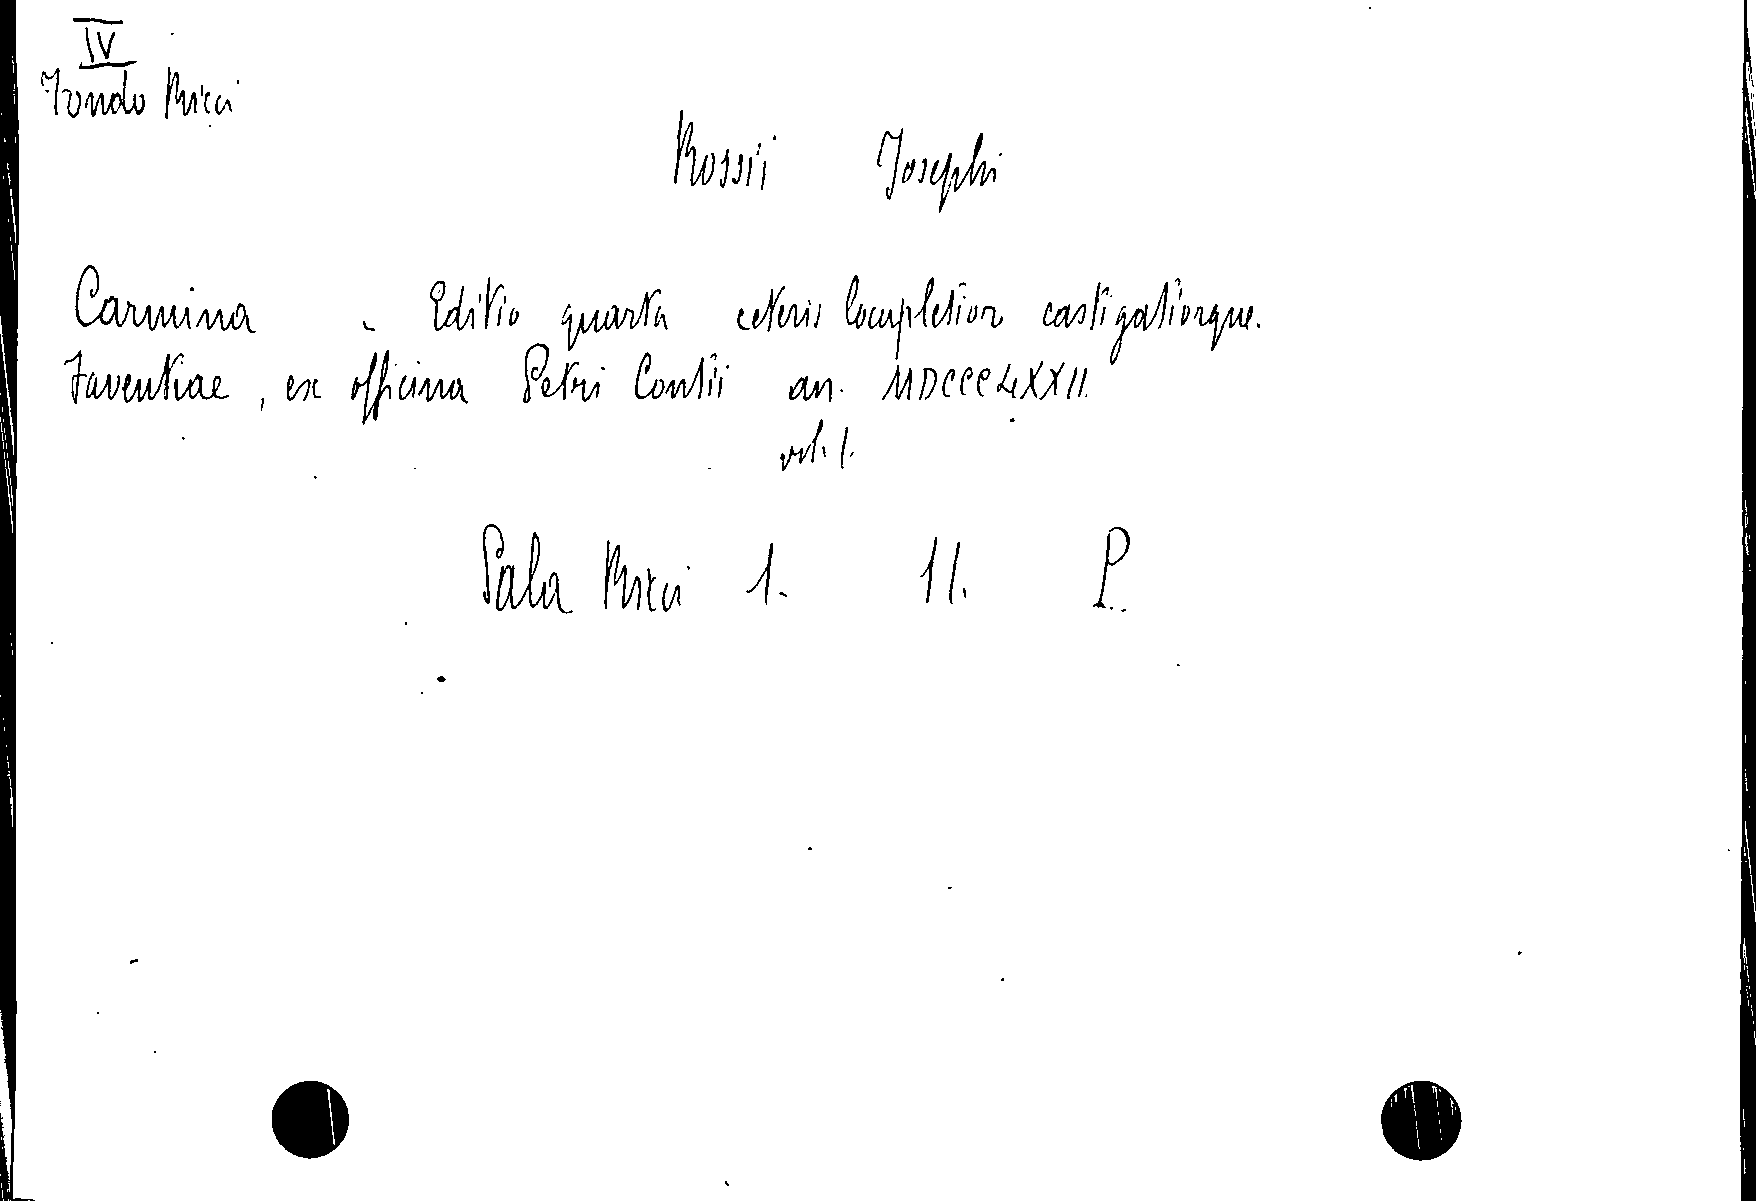 IV
Fondo Ricci
Rossii Josephi
Carmina - Editio quarta ceteris locupletior castigatiorque.
Faventiae, ex officina Petri Contii an. MDCCCLXXII
vol. 1.
Sala Ricci 1. 11. P.